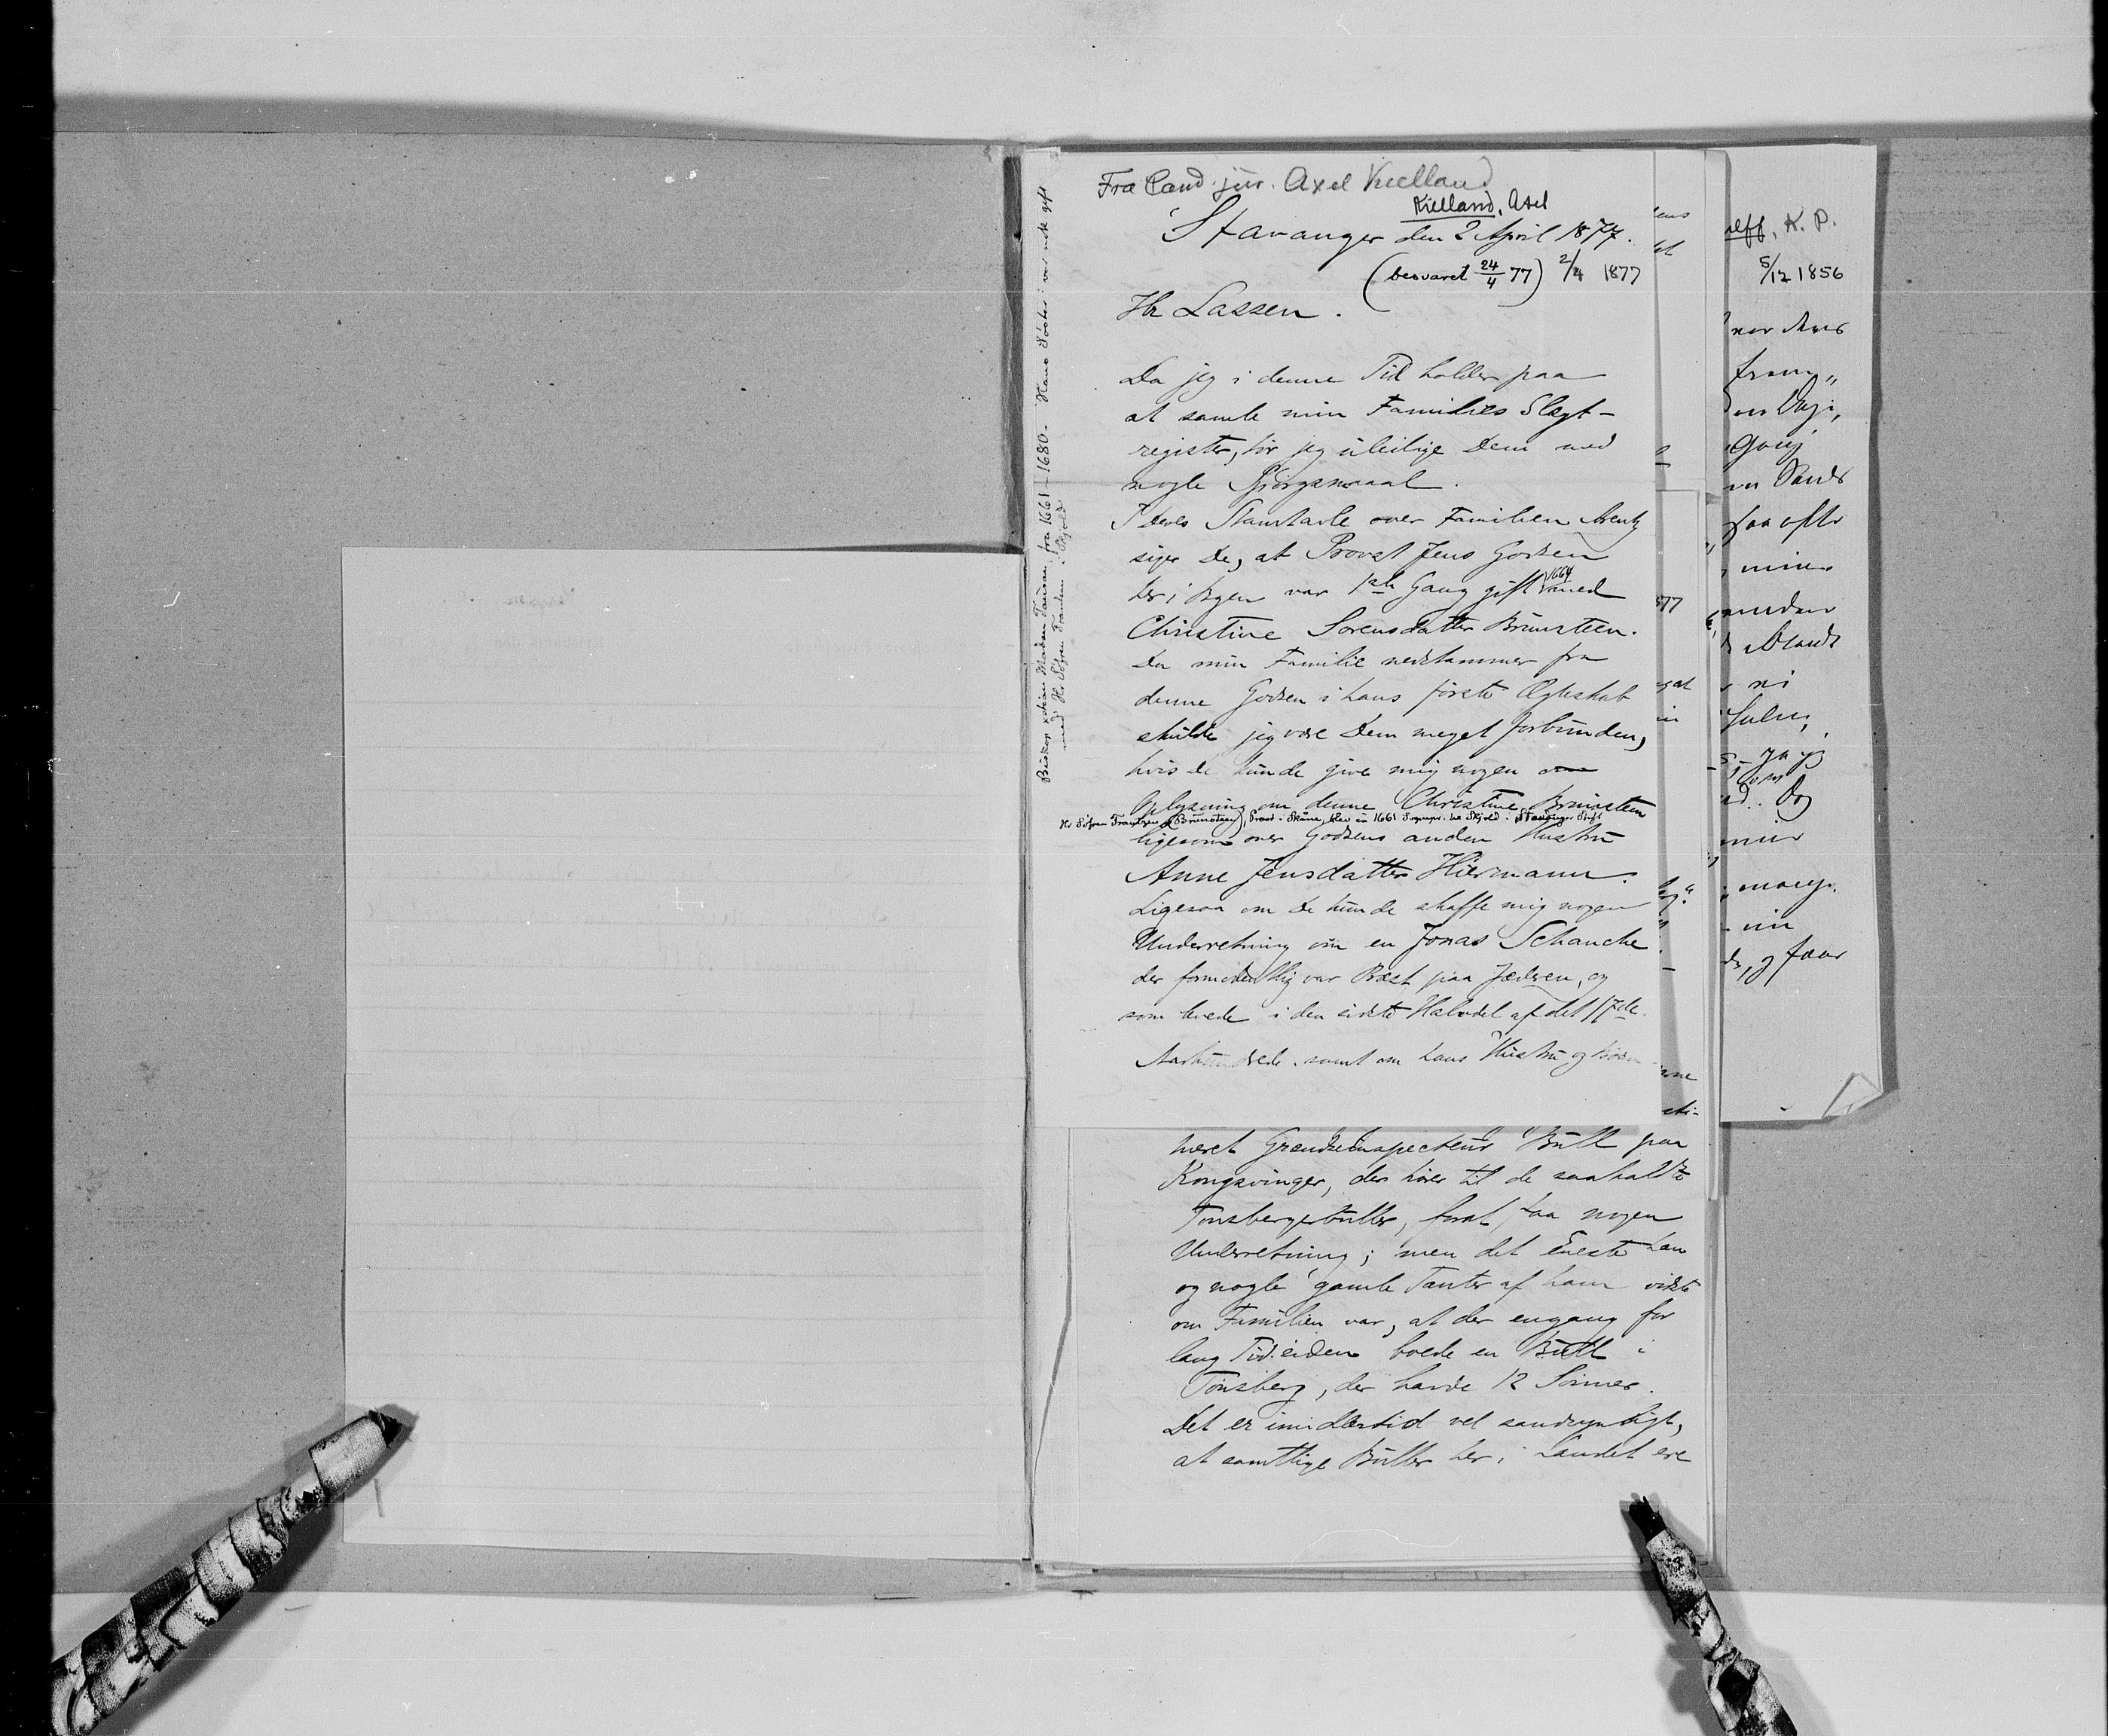 Fra Cand. jur. Axel Kielland
Kielland, Axel
Stavanger den 2 April 1877.
(besvaret 24/4 77) 2/4 1877
Hr Lassen.
Da jeg i denne Tid holder paa
at samle min Families Slægt-
register, tør jeg uleilige Dem med
nogle Spørgsmaal.
I Deres Stamtavle over Familien Arentz
siger De, at Provst Jens Godzen
her i Byen var 1ste Gang gift 1664 med
Christine Sorensdatter Brunsteen.
Da min Familie nedstammer fra
denne Godzen i hans første Ægteskab
skulde jeg være Dem meget forbunden,
hvis De kunde give mig nogen
Oplysning om denne Christine Brunsteen
Hr Søfren Frantzen (Brunsteen), Præst i Skåne, blev in 1661 Sognepr. til Skjold i Stavanger Stift
ligesom over Godzens anden Hustru
Anne Jensdatter Hiermann.
Ligesaa om De kunde skaffe mig nogen
Underretning om en Jonas Schanche
der formodentlig var Præst paa Jæderen, og
som levede i den sidste Halvdel af det 17de
Aarhundrede samt om hans Hustru og Børn
Biskop xstian Madsen Tausan fra 1661–1680 – Hans Søster: var nok gift
med Hr Søfren Frantzen i Skjold
neret Grændseinspecteur Bull paa
Kongsvinger, der hører til de saakaldte
Tønsbergerbuller, forat faa nogen
Underretning; men det Eneste han
og nogle gamle Tanter af ham vidste
om Familien var, at der engang for
lang Tid siden boede en Bull i
Tønsberg, der havde 12 Sønner.
Det er imidlertid vel sandsynligt,
at samtlige Buller her i Landet ere
K. P.
5/12 1856